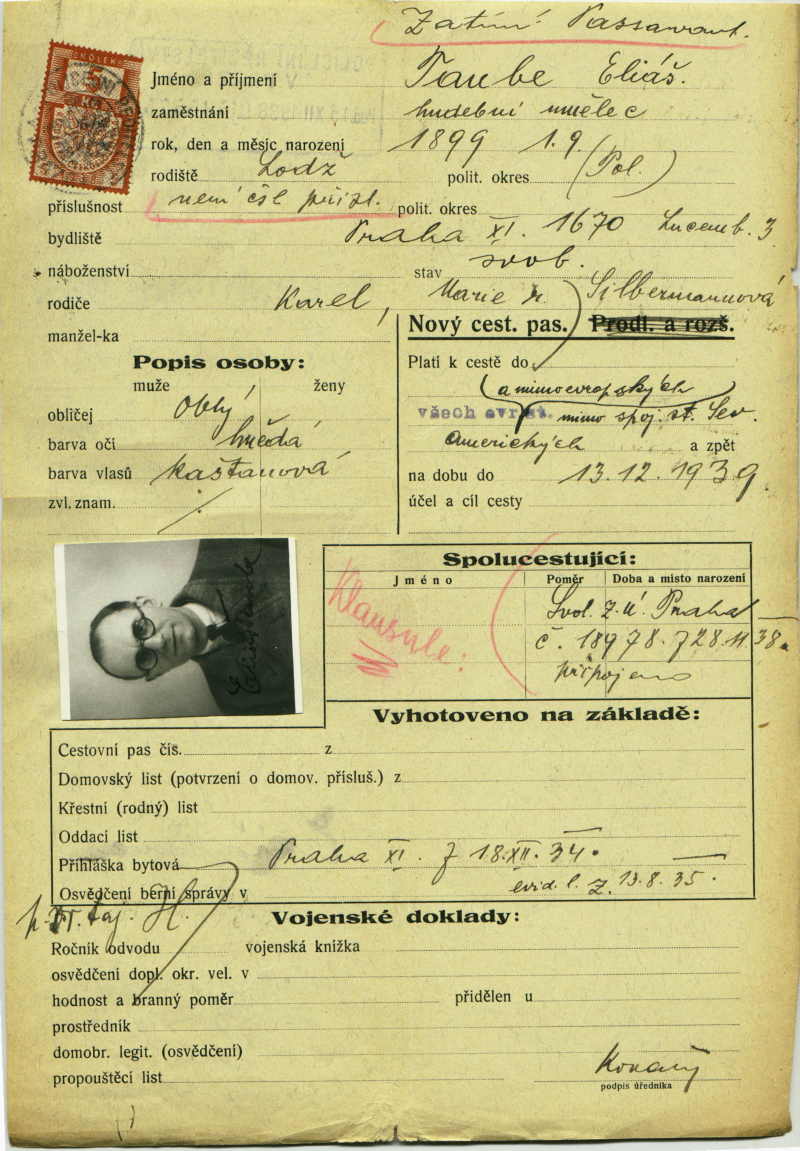 Zatímní Passavant.
KOLEK
Jméno a příjmení Taube Eliáš.
zaměstnání hudební umělec
rok, den a měsíc narození 1899 1.9.
rodiště Lodž polit. okres (Pol.)
příslušnost není čsl přísl. polit. okres
bydliště Praha XI. 1670 Lucemb. 3
náboženství stav svob.
rodiče Karel, Marie r. Silbermannová
manžel-ka
Nový cest. pas. Prodl. a rozš.
Popis osoby:
Platí k cestě do
muže ženy
(a mimoevropských
obličej Oblý
všech evr. st. mimo spoj. st. Sev.
barva očí hnědá
Amerických a zpět
barva vlasů kaštanová
na dobu do 13.12.1939.
zvl. znam. /.
účel a cíl cesty
Spolucestující:
Jméno Poměr Doba a místo narození
Klausule:
Svol. z. ú. Praha
č. 18978. z 28.11 38.
připojeno
Eliáš Taube
Vyhotoveno na základě:
Cestovní pas čís. z
Domovský list (potvrzení o domov. přísluš.) z
Křestní (rodný) list
Oddací list
Přihláška bytová Praha XI. z 18.XII.34.
Osvědčení berní správy v evid. l. z. 13.8.35.
Vojenské doklady:
Ročník odvodu vojenská knížka
osvědčení dopl. okr. vel. v
hodnost a branný poměr přidělen u
prostředník
domobr. legit. (osvědčení)
propouštěcí list
podpis úředníka